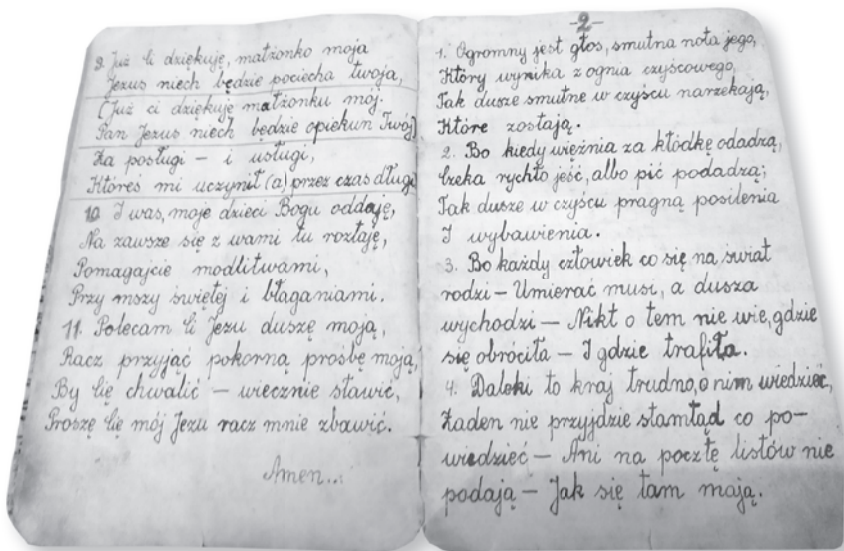 9. Już ci dziękuję, małżonko moja
Jezus niech będzie pociecha twoja,
(Już ci dziękuję małżonku mój.
Pan Jezus niech będzie opiekun Twój)
Za posługi – i usługi,
Któreś mi uczynił (a) przez czas długi
10. I was, moje dzieci Bogu oddaję,
Na zawsze się z wami tu rozłaję,
Pomagajcie modlitwami,
Przy mszy świętej i błaganiami.
11. Polecam Ci Jezu duszę moją,
Racz przyjąć pokorną prośbę moją,
By Cię chwalić – wiecznie sławić,
Proszę Cię mój Jezu racz mnie zbawić.
Amen...
-2-
1. Ogromny jest głos, smutna nota jego,
Który wynika z ognia czyścowego,
Tak dusze smutne w czyścu narzekają,
Które zostają.
2. Bo kiedy więźnia za kłódkę odadzą,
Czeka rychło jeść, albo pić podadzą;
Tak dusze w czyścu pragną posilenia
I wybawienia.
3. Bo każdy człowiek co się na świat
rodzi – Umierać musi, a dusza
wychodzi – Nikt o tem nie wie, gdzie
się obróciła – I gdzie trafiła.
4. Daleki to kraj trudno, o nim wiedzieć,
Żaden nie przyjdzie stamtąd co po-
wiedzieć – Ani na pocztę listów nie
podają – Jak się tam mają.